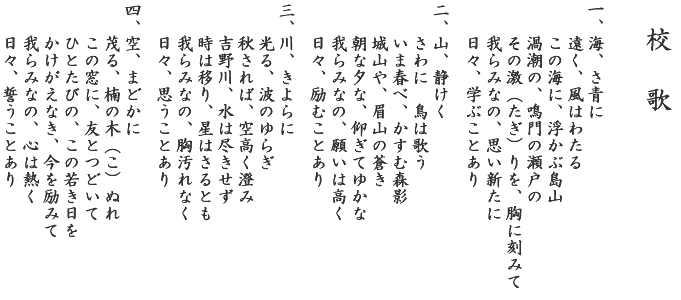 校歌
一、海、さ青に
遠く、風はわたる
この海に、浮かぶ島山
渦潮の、鳴門の瀬戸の
その激（たぎ）りを、胸に刻みて
我らみなの、思い新たに
日々、学ぶことあり
二、山、静けく
さわに　鳥は歌う
いま春べ、かすむ森影
城山や、眉山の蒼き
朝な夕な、仰ぎてゆかな
我らみなの、願いは高く
日々、励むことあり
三、川、きよらに
光る、波のゆらぎ
秋されば、空高く澄み
吉野川、水は尽きせず
時は移り、星はさるとも
我らみなの、胸汚れなく
日々、思うことあり
四、空、まどかに
茂る、楠の木（こ）ぬれ
この窓に、友とつどいて
ひとたびの、この若き日を
かけがえなき、今を励みて
我らみなの、心は熱く
日々、誓うことあり